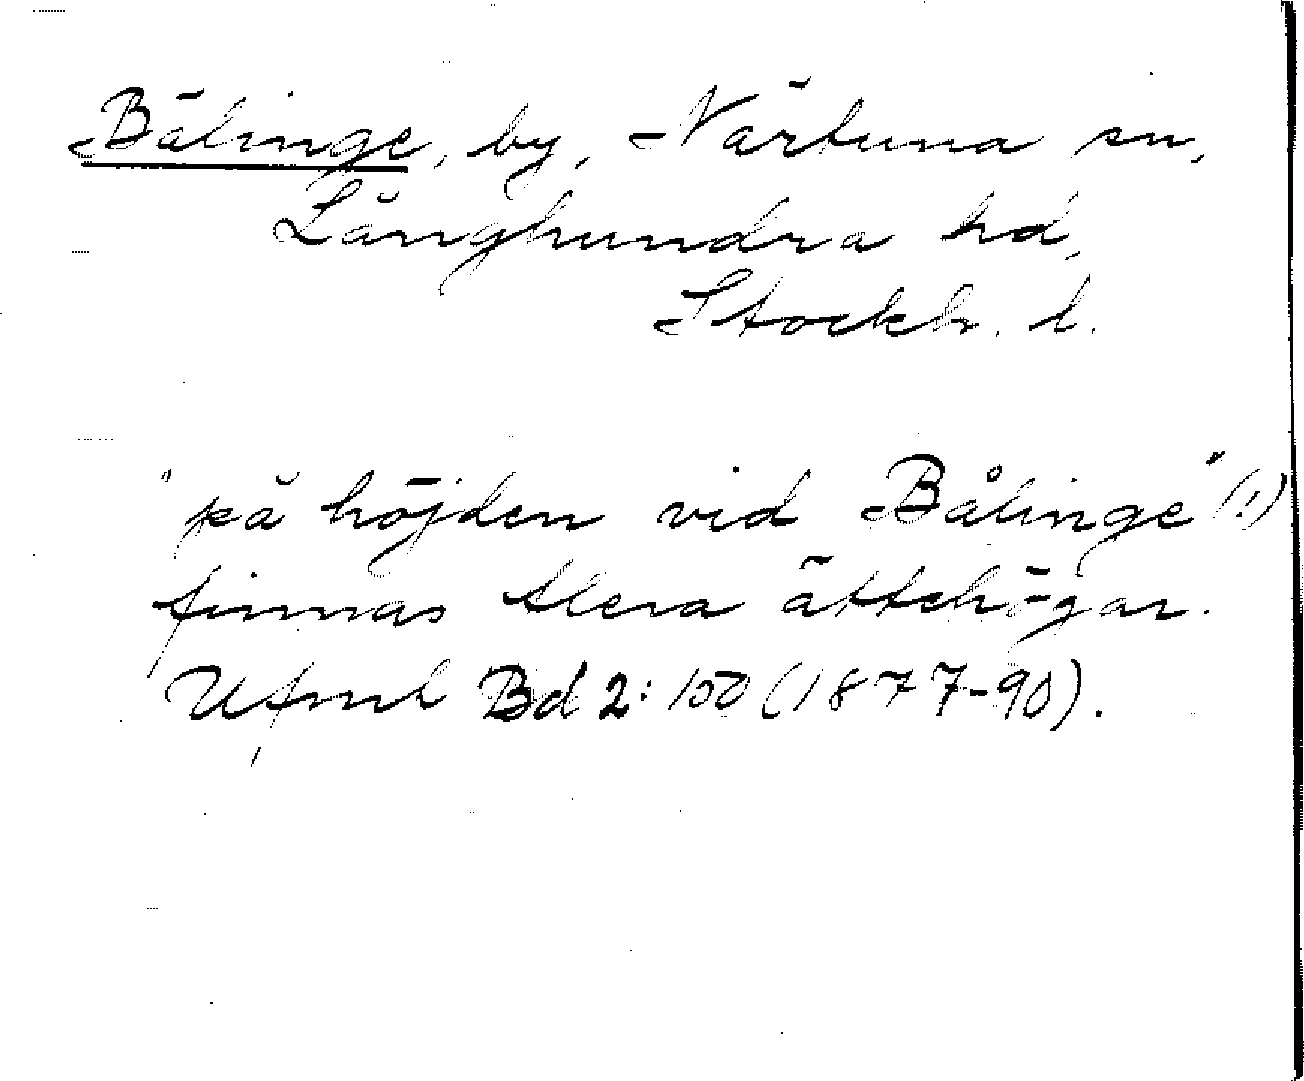 Bälinge, by, Närtuna sn,
Långhundra hd,
Stockh. l.
"på höjden vid Bålinge" (!)
finnas flera ättehögar.
Ufmh Bd 2: 100 (1877-90).